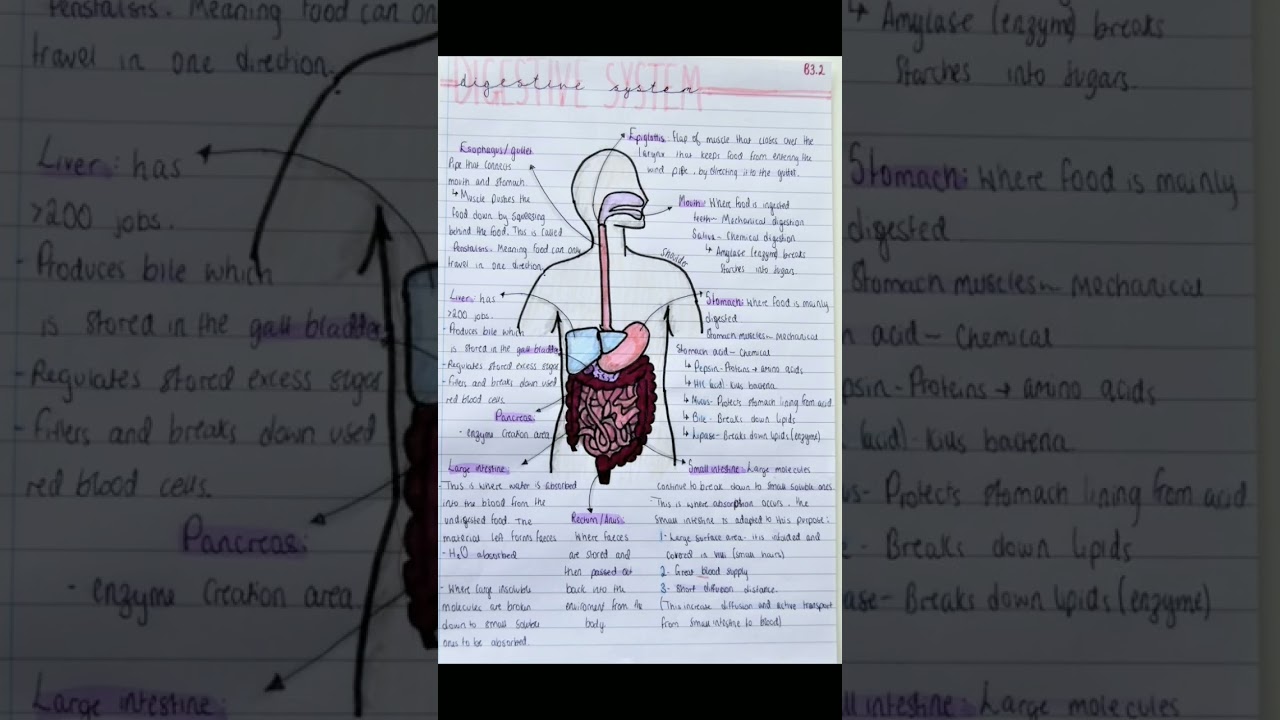 B3.2
DIGESTIVE SYSTEM
digestive system
Epiglottis: Flap of muscle that closes over the
larynx that keeps food from entering the
wind pipe, by directing it to the gullet.
Esophagus/gullet
Pipe that connects
mouth and stomach.
↳ Muscle pushes the
food down by squeezing
behind the food. This is called
Peristalsis. Meaning food can only
travel in one direction.
Mouth: Where food is ingested
teeth~ Mechanical digestion
Saliva~ Chemical digestion
↳ Amylase (enzyme) breaks
Starches into sugars.
Shoulder
Liver: has
>200 jobs.
- Produces bile which
is stored in the gall bladder
- Regulates stored excess sugar
- Filters and breaks down used
red blood cells.
Stomach: Where food is mainly
digested
Stomach muscles~ Mechanical
Stomach acid~ Chemical
↳ Pepsin- Proteins → amino acids
↳ HCl (acid)- Kills bacteria
↳ Mucus- Protects stomach lining from acid
↳ Bile- Breaks down lipids
↳ Lipase- Breaks down lipids (enzyme)
Pancreas:
- enzyme creation area
Large intestine:
- This is where water is absorbed
into the blood from the
undigested food. The
material left forms faeces
- H₂O absorbed
- Where large insoluble
molecules are broken
down to small soluble
ones to be absorbed.
Rectum/Anus:
Where faeces
are stored and
then passed out
back into the
enviroment from the
body.
Small intestine: Large molecules
continue to break down to small soluble ones
- This is where absorption occurs. The
small intestine is adapted to this purpose:
1- Large surface area- it is folded and
covered in villi (small hairs)
2- Great blood supply
3- Short diffusion distance.
(This increase diffusion and active transport
from small intestine to blood)